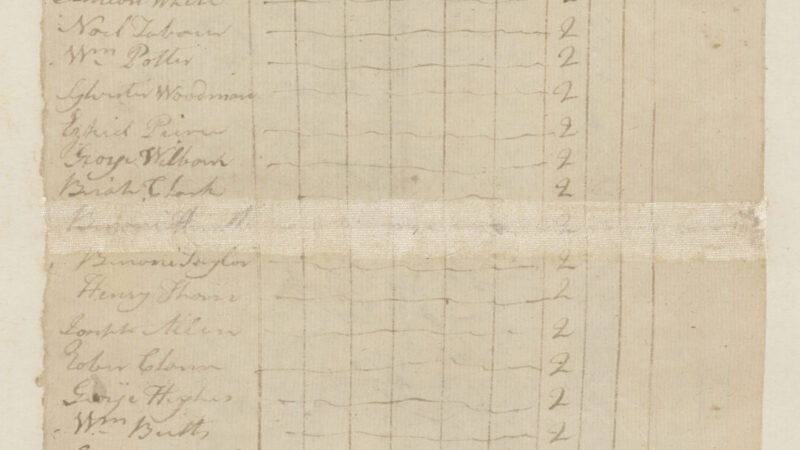 White 2
Noel Tabour 2
Wm Potter 2
Sylvester Woodman 2
Ezekiel Peirce 2
George Wilbour 2
Clark 2
2
Benoni Taylor 2
Henry 2
Joseph Allen 2
2
George Hughes 2
Wm Butts 2